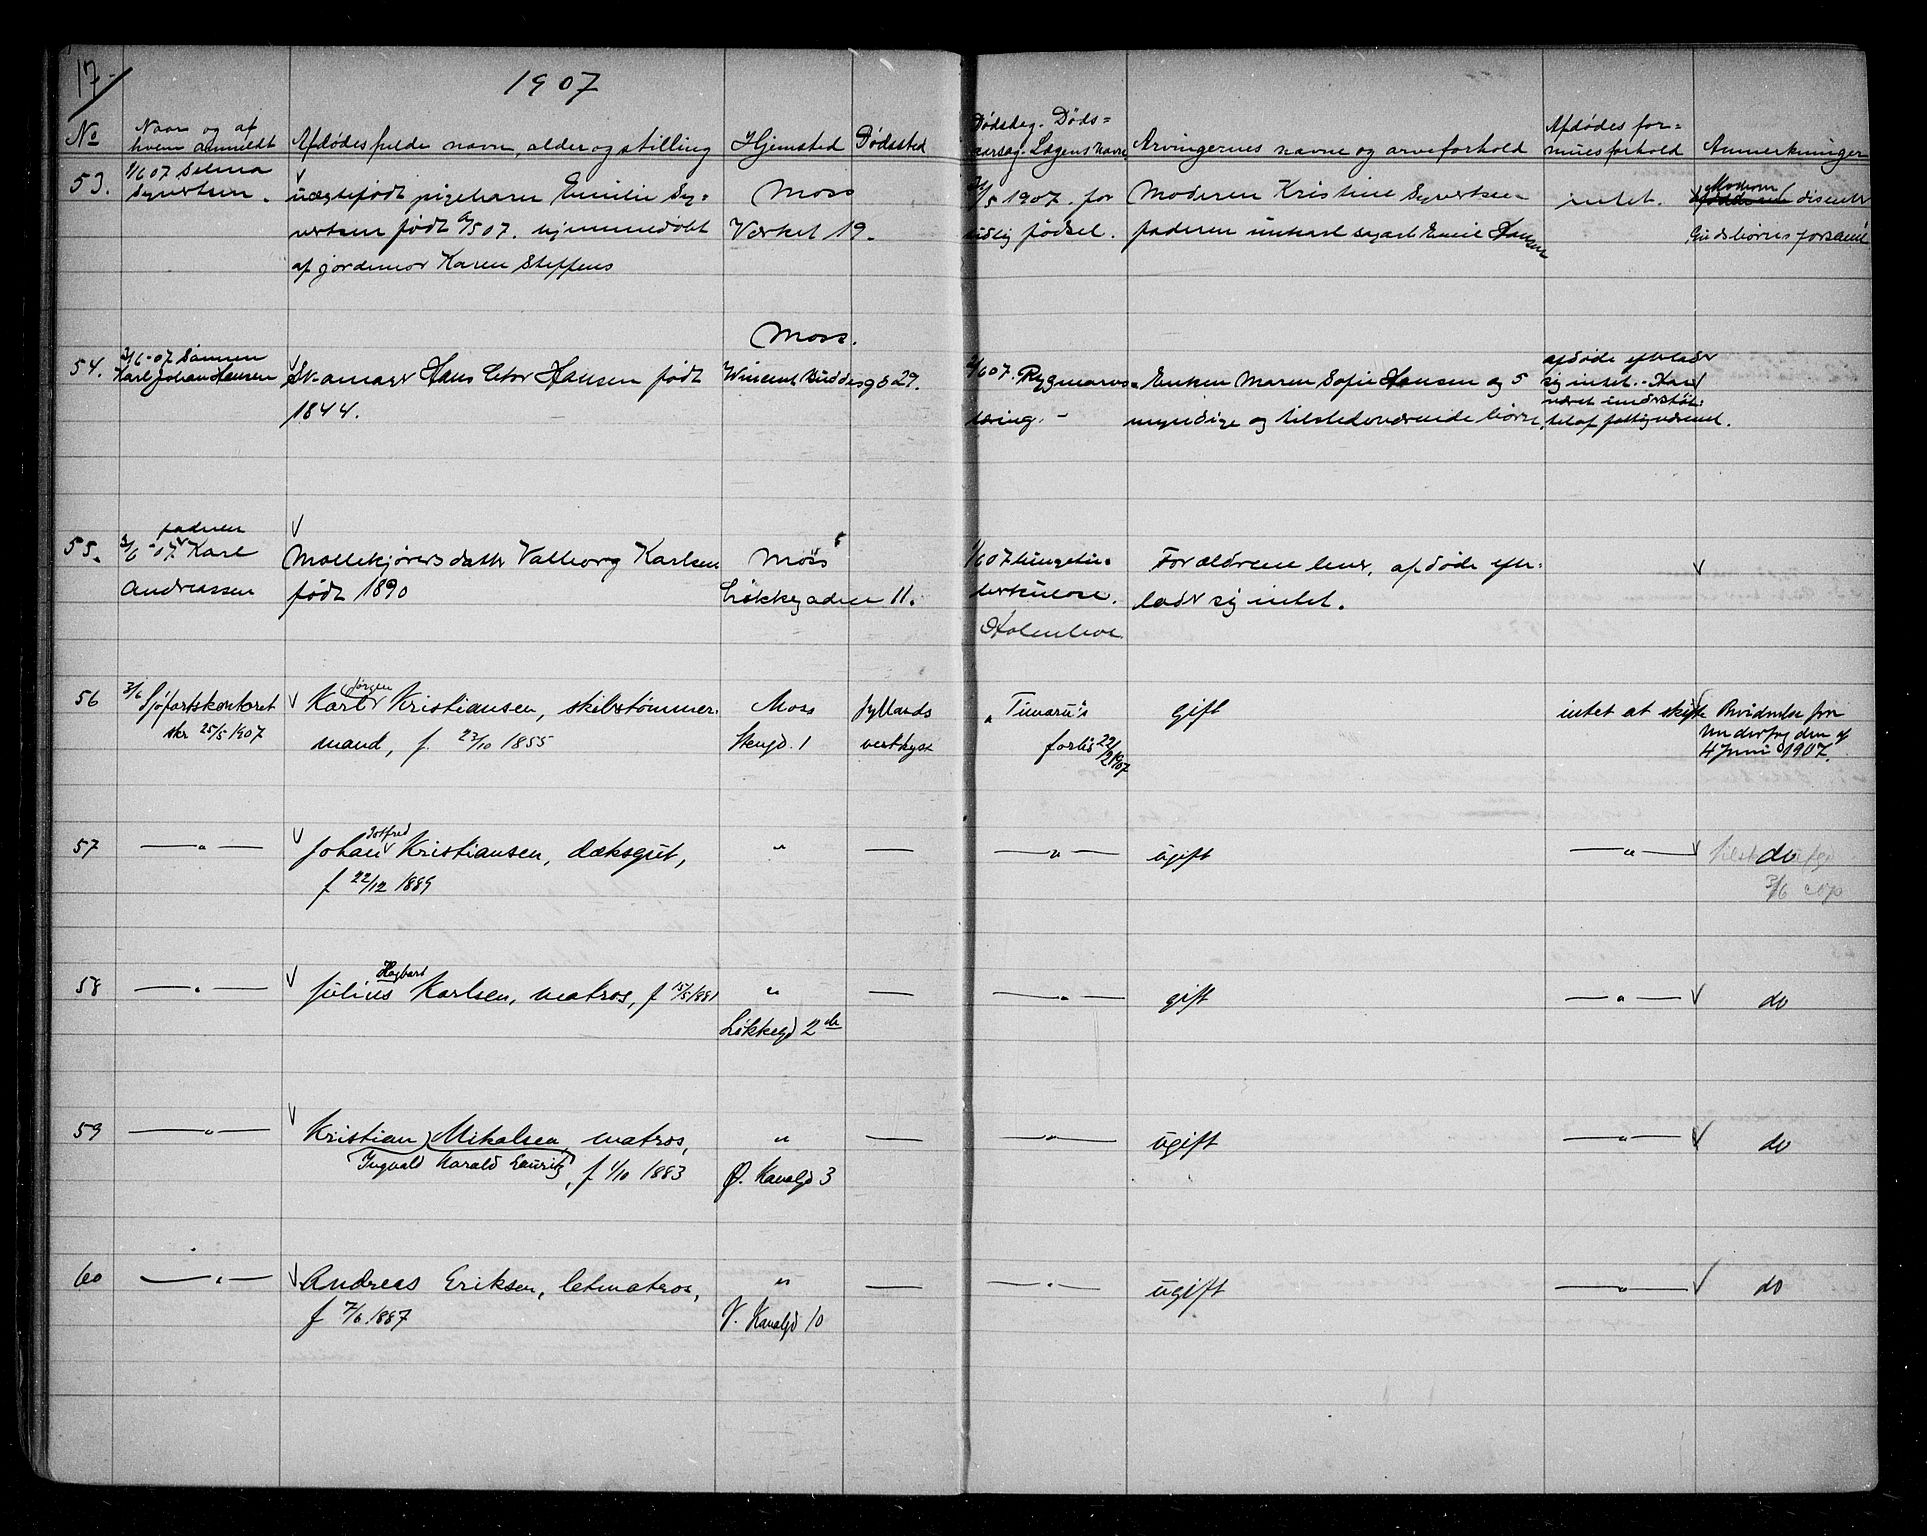 17
1907
No
Naar og af
hvem anmeldt
Afdødes fulde navn, alder og stilling
Hjemsted
Dødssted
Dødsdag. Døds=
aarsag. Lægens navn
Arvingernes navne og arveforhold
Afdødes for=
muesforhold
Anmerkninger
53.
1/6 07 Selma
Syvertsen.
uægtefødt pigebarn Emilie Sy=
vertsen født /5 07. hjemmedøbt
af jordemor Karen Steffens
Moss
Værket 19.
/5 1907. for
tidlig fødsel.
Moderen Kristine Syvertsen
faderen ungkarl Emil Hansen
intet.
Moderen
dissenter
Gudsbørns forsaml
54.
3/6-07 Sønnen
Karl Johan Hansen
Skomager Hans Hansen født
1844.
Moss.
Wincent Buddesg 29.
/6 07. Rygmarvs=
tæring. -
Enken Maren Sofie Hansen og 5
myndige og tilstedeværende børn.
afdøde efterlader
sig intet. - Har
været understøt=
tet af fattigvæsenet.
55.
faderen
3/6-07. Karl
Andreassen
Møllekjørersdatter Valborg Karlsen
født 1890
Moss
Løkkegaden 11.
1/6 07 Lungetu=
berkulose.
Forældrene lever, afdøde efter=
lader sig intet.
56
3/6 Sjøfartskontoret
skr 25/5 1907
Jørgen
Karl Kristiansen, skibstømmer=
mand, f. 23/10 1855
Moss
Stengd. 1
Jyllands
vestkyst
" Timaru's
forlis 22/2 1907
gift
intet at skifte
Bevidnelse fra
Underfogden af
4 Juni 1907.
57
— " —
Gotfred
Johan Kristiansen, dæksgut,
f 22/12 1889
"
—
— " —
ugift
— " —
do
3/6
58
— " —
Hagbart
Julius Karlsen, matros, f 15/5 1881
"
Løkkegd 2 de
—
— " —
gift
— " —
do
59
— " —
Kristian Mikalsen, matros,
Ingvald Harald Lauritz, f 1/10 1883
"
Ø. Kanalgd 3
—
— " —
ugift
— " —
do
60
— " —
Andreas Eriksen, letmatros,
f 7/6 1887
"
V. Kanalgd 10
—
— " —
ugift
— " —
do